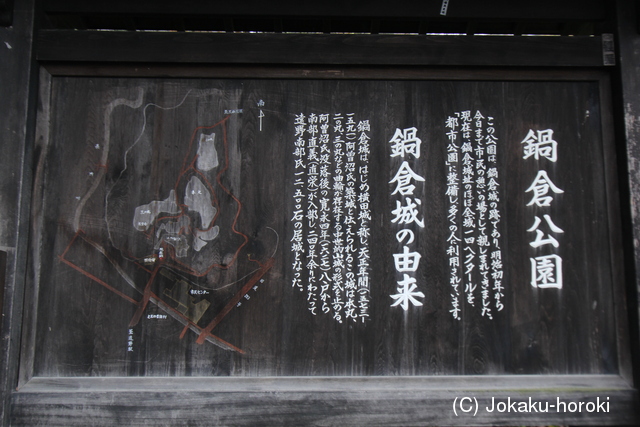 鍋倉公園
この公園は、鍋倉城の跡であり、明治初年から
今日まで、市民の憩いの場として親しまれてきました。
現在は、鍋倉城址のほぼ全域一四ヘクタールを、
都市公園に整備し、多くの人に利用されています。
鍋倉城の由来
鍋倉城は、はじめ横田城と称し、天正年間（一五七三―
一五九一）阿曽沼氏の築城と伝えられ、この城は本丸、
二の丸、三の丸などの曲輪が存在する中世的山城の形式を止める。
阿曽沼氏没落後の寛永四年（一六二七）八戸から
南部直義（直栄）が入部し二四〇年余りにわたって
遠野南部氏一二、五〇〇石の居城となった。
南
市民センター
至遠野駅
(C) Jokaku-horoki